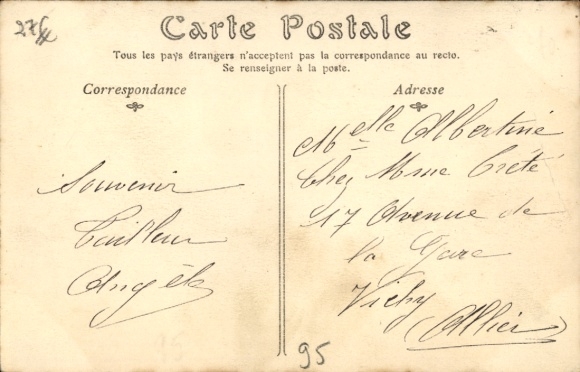 Carte Postale
Tous les pays étrangers n'acceptent pas la correspondance au recto.
Se renseigner à la poste.
Correspondance
Souvenir
Angèle
Adresse
Melle Albertine
Chez Mme Crété
17 Avenue de
la Gare
Vichy
(Allier)
95